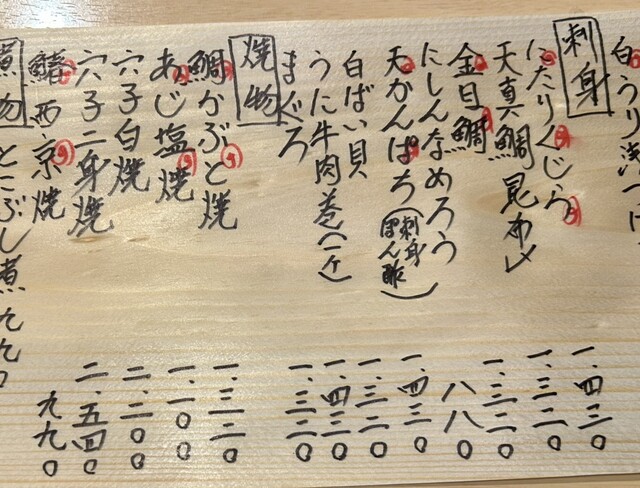 白うり浅づけ
刺身
にたりくじら 一.四三〇
天真鯛昆布〆 一.三二〇
金目鯛 一.三二〇
にしんなめろう 八八〇
天かんぱち(刺身 ぽん酢) 一.四三〇
白ばい貝 一.三二〇
うに牛肉巻(一ケ) 一.四三〇
まぐろ 一.三二〇
焼物
鯛かぶと焼 一.三二〇
あじ塩焼 一.一〇〇
穴子白焼 二.二〇〇
穴子二身焼 二.五四〇
鯖西京焼 九九〇
煮物
とこぶし煮 九九〇